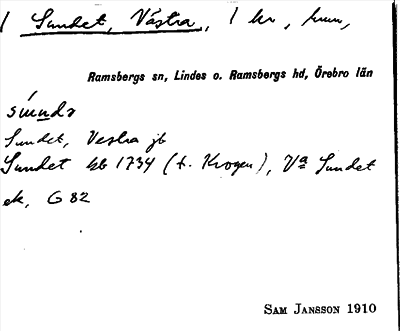 / Sundet, Västra, 1 hr, hmn,
Ramsbergs sn, Lindes o. Ramsbergs hd, Örebro län
Sundet, Vestra jb
Sundet kb 1734 (t. Krogen), Vª Sundet
ek, G 82
SAM JANSSON 1910